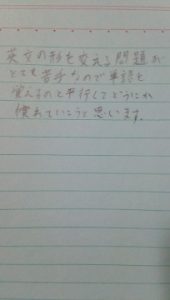 英文の形を変える問題が
とても苦手なので単語を
覚えるのと平行してどうにか
慣れていこうと思います。